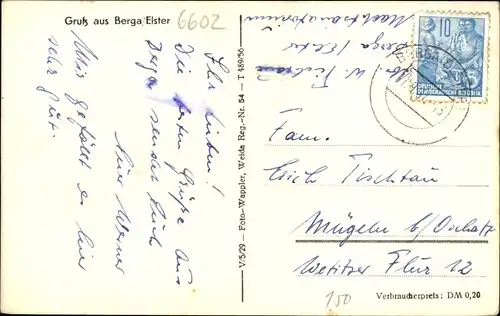 Gruß aus Berga/Elster
6602
Ihr Lieben!
Die besten Grüße aus
Berga sendet Euch
Euer Werner
Mir gefällt es hier
sehr gut.
V/5/29 – Foto-Wappler, Weida Reg.-Nr. 54 – T 489/56
Nachtsanatorium
Berga / Elster
W.
10
DEUTSCHE
DEMOKRATISCHE REPUBLIK
BERGA
Fam.
Erich Tischtau
Mügeln b/Oschatz
Wetitzer Flur 12
150
Verbraucherpreis: DM 0,20